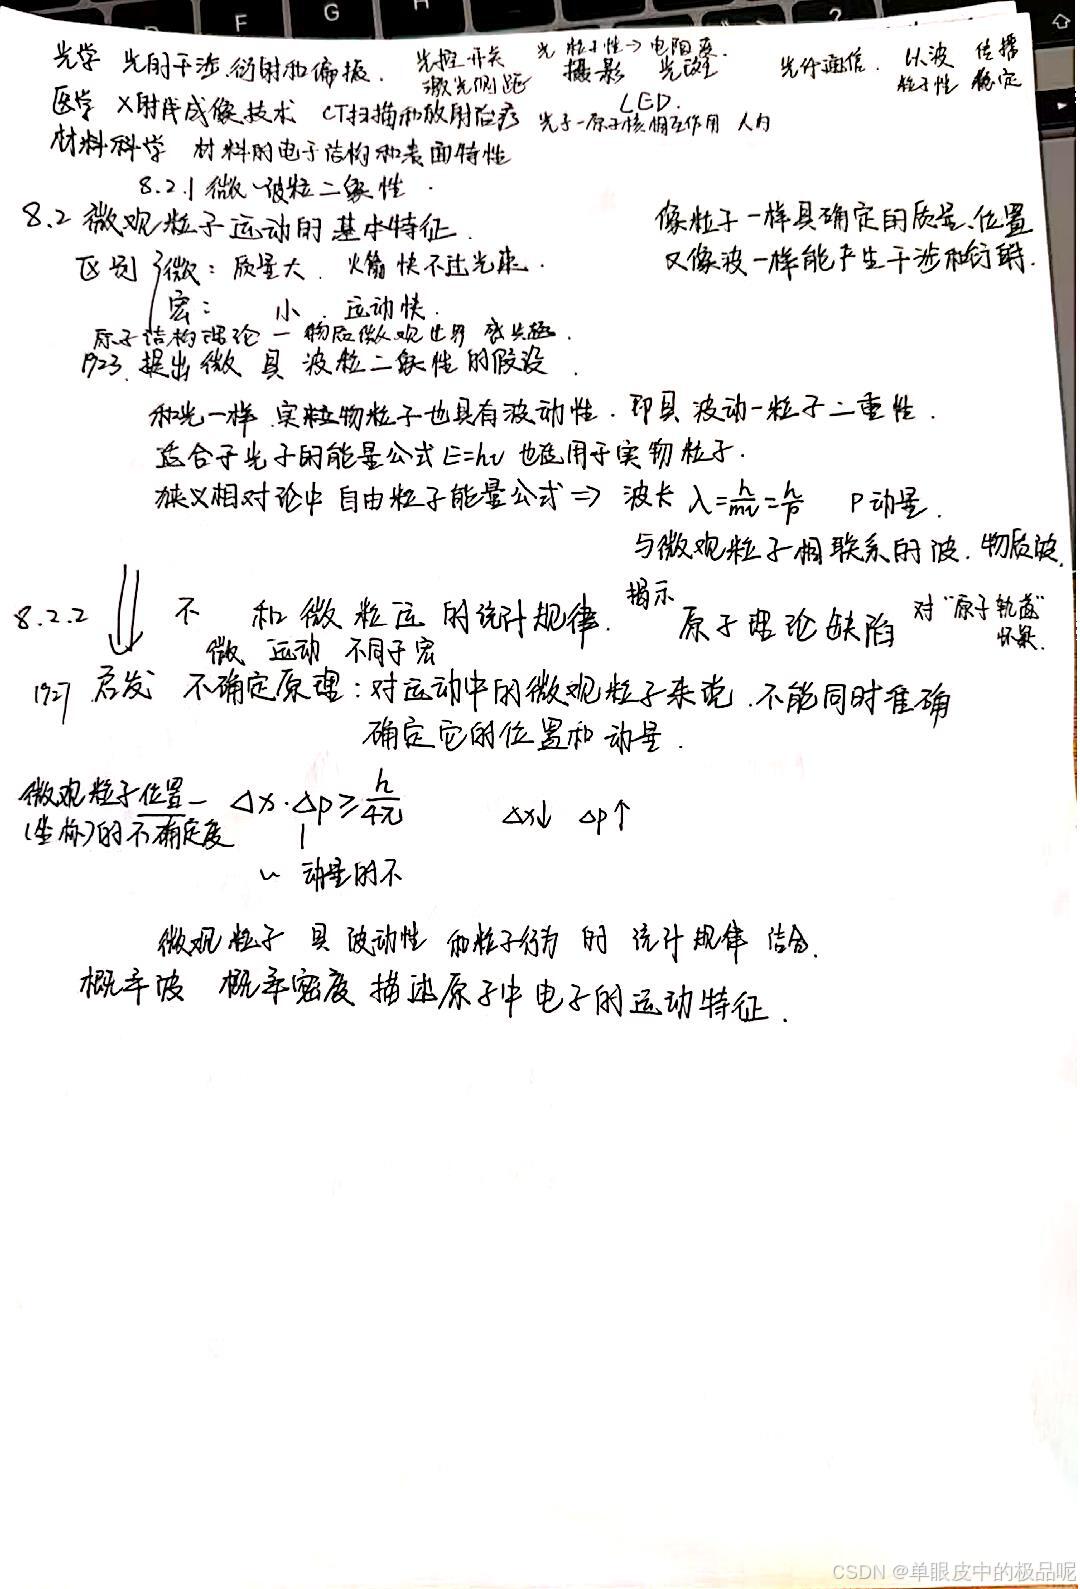 F G H
光学 光的干涉,衍射和偏振. 光控开关 光 粒子性→电阻变.
激光测距 摄影 光谱 光纤通信. 以波 传播
粒子性 稳定
医学 X射线成像技术 CT扫描和放射治疗 LED.
光子-原子核相互作用 人内
材料科学 材料的电子结构和表面特性
8.2.1 微、波粒二象性.
8.2 微观粒子运动的基本特征. 像粒子一样具确定的质量、位置
区别 微: 质量大. 火箭快不过光速. 又像波一样能产生干涉和衍射.
宏: 小. 运动快.
原子结构理论 — 物质微观世界
1923. 提出微 具 波粒二象性的假设.
和光一样.实粒物粒子也具有波动性.即具 波动-粒子二重性.
适合于光子的能量公式E=hν也适用于实物粒子.
狭义相对论中 自由粒子能量公式⇒ 波长 λ=h/mv=h/p P动量.
与微观粒子相联系的波.物质波.
8.2.2 不 和微粒运 的统计规律. 揭示 原子理论缺陷 对"原子轨道"
怀疑.
微 运动 不同于宏
1927 启发 不确定原理:对运动中的微观粒子来说.不能同时准确
确定它的位置和动量.
微观粒子位置— Δx·Δp≥h/4π Δx↓ Δp↑
(坐标)的不确定度
~ 动量的不
微观粒子 具 波动性 和粒子行为 的 统计规律 结合.
概率波 概率密度 描述原子中电子的运动特征.
CSDN @单眼皮中的极品呢